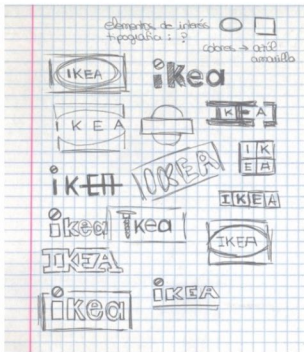 elementos de interés
tipografía: ?
colores → azúl
amarillo
IKEA
ikea
I K E A
IKEA
IKEA
ikEA
IK
EA
IKEA
ikea
Ikea
IKEA
IKEA
ikea
IKEA